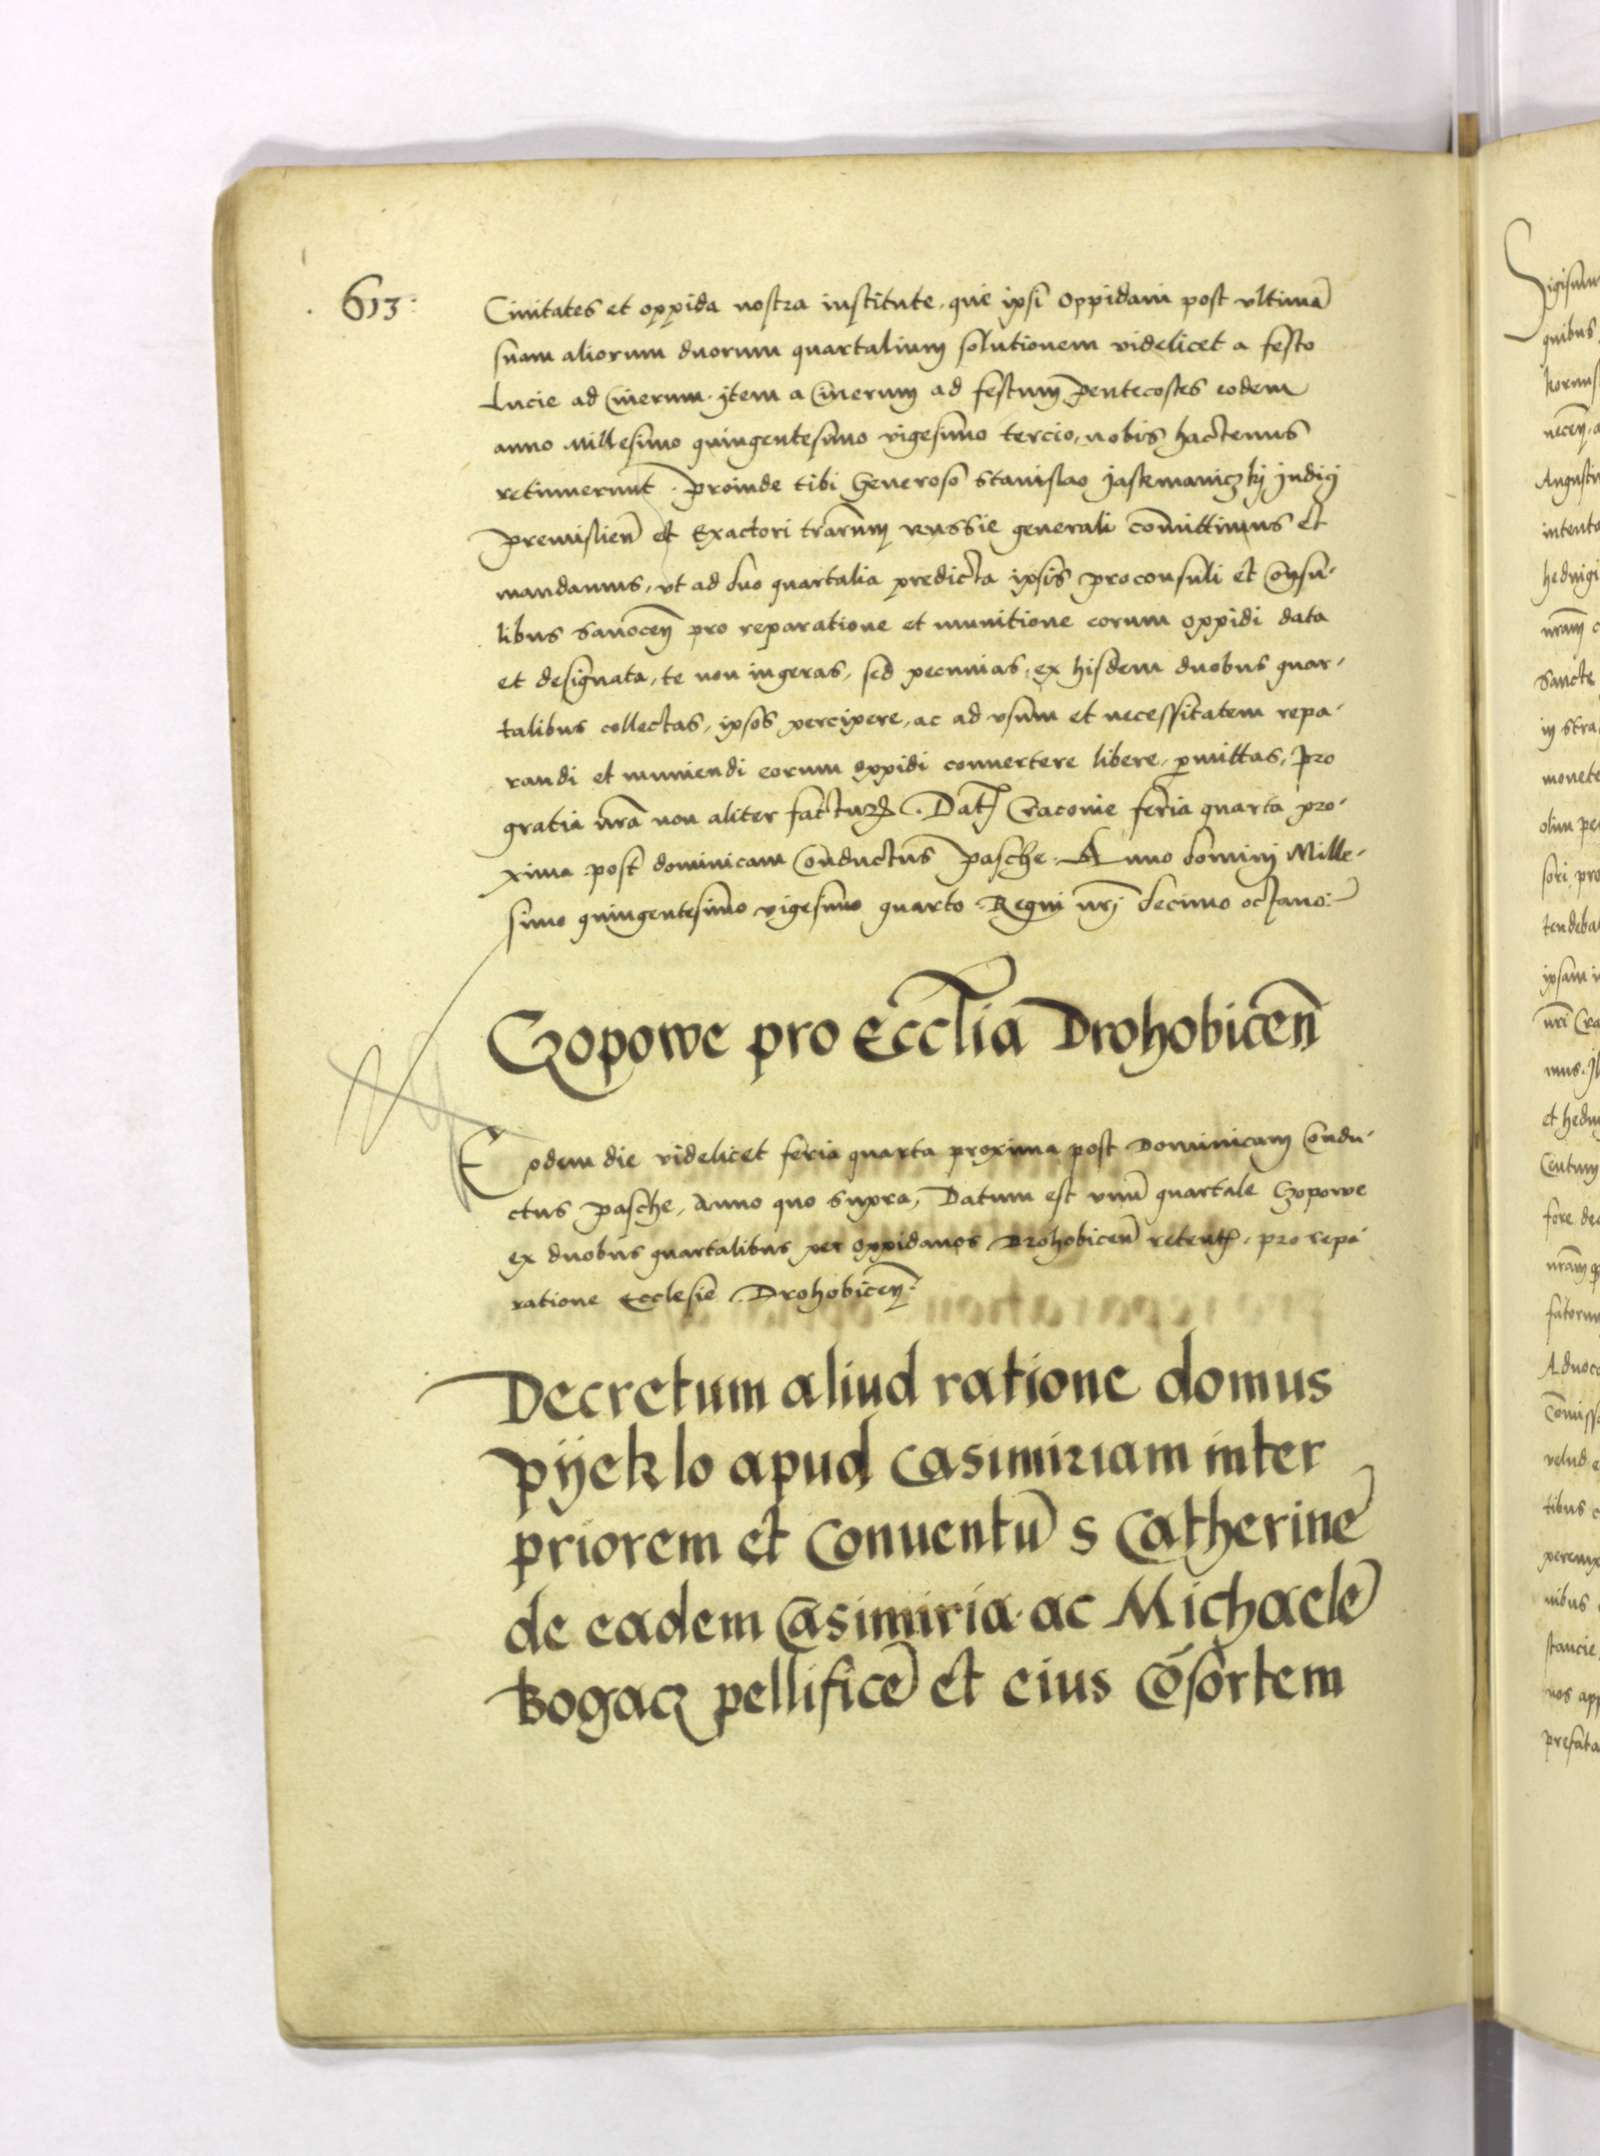 613
Ciuitates et oppida nostra institute, que ipsi oppidani post vltimā
suam aliorum duorum quartalium solutionem videlicet a festo
Lucie ad Cinerum. jtem a Cinerum ad festum Pentecostes eodem
anno Millesimo quingentesimo vigesimo tercio, nobis hactenus
retinuerunt. Proinde tibi Generoso Stanislao Jaskmaniczkj Judicj
Premislien̄ et Exactori trārum Russie generali com̄ittimus et
mandamus, vt ad duo quartalia predicta ipsis proconsuli et Consu-
libus Sanoceñ pro reparatione et munitione eorum oppidi data
et designata, te non ingeras, sed pecunias, ex hisdem duobus quar-
talibus collectas, ipsos percipere, ac ad vsum et necessitatem repa-
randi et muniendi eorum oppidi conuertere libere, pmittas, Pro
gratia nrā non aliter factur. Dat Cracouie feria quarta pro-
xima post dominicam Conductus Pasche. Anno dominj Mille-
simo quingentesimo vigesimo quarto. Regni nrj decimo octauo.
Czopowe pro Ecclīa Drohobiceñ
Eodem die videlicet feria quarta proxima post Dominicam Condu-
ctus Pasche, Anno quo supra, Datum est vnū quartale Czopowe
ex duobus quartalibus per oppidanos Drohobiceñ retent, pro repa
ratione Ecclesie Drohobiceñ.
Decretum aliud ratione domus
Pijeklo apud Casimiriam inter
priorem et Conuentū s Catherine
de eadem Casimiria. ac Michaelē
Bogacz pellificē et eius Cōsortem
Sigismu
quibus
necen, a
Augusti
intenta
hedvigi
nrām c
Sancte
in stra
monete
olim pe
sori, pro
tendeba
ipsam i
nrī Cra
mus. Jl
et hedu
Centum
fore dec
fatorum
Aduoca
Com̄iss
velud e
tibus c
nibus
stancie
nos app
prefata